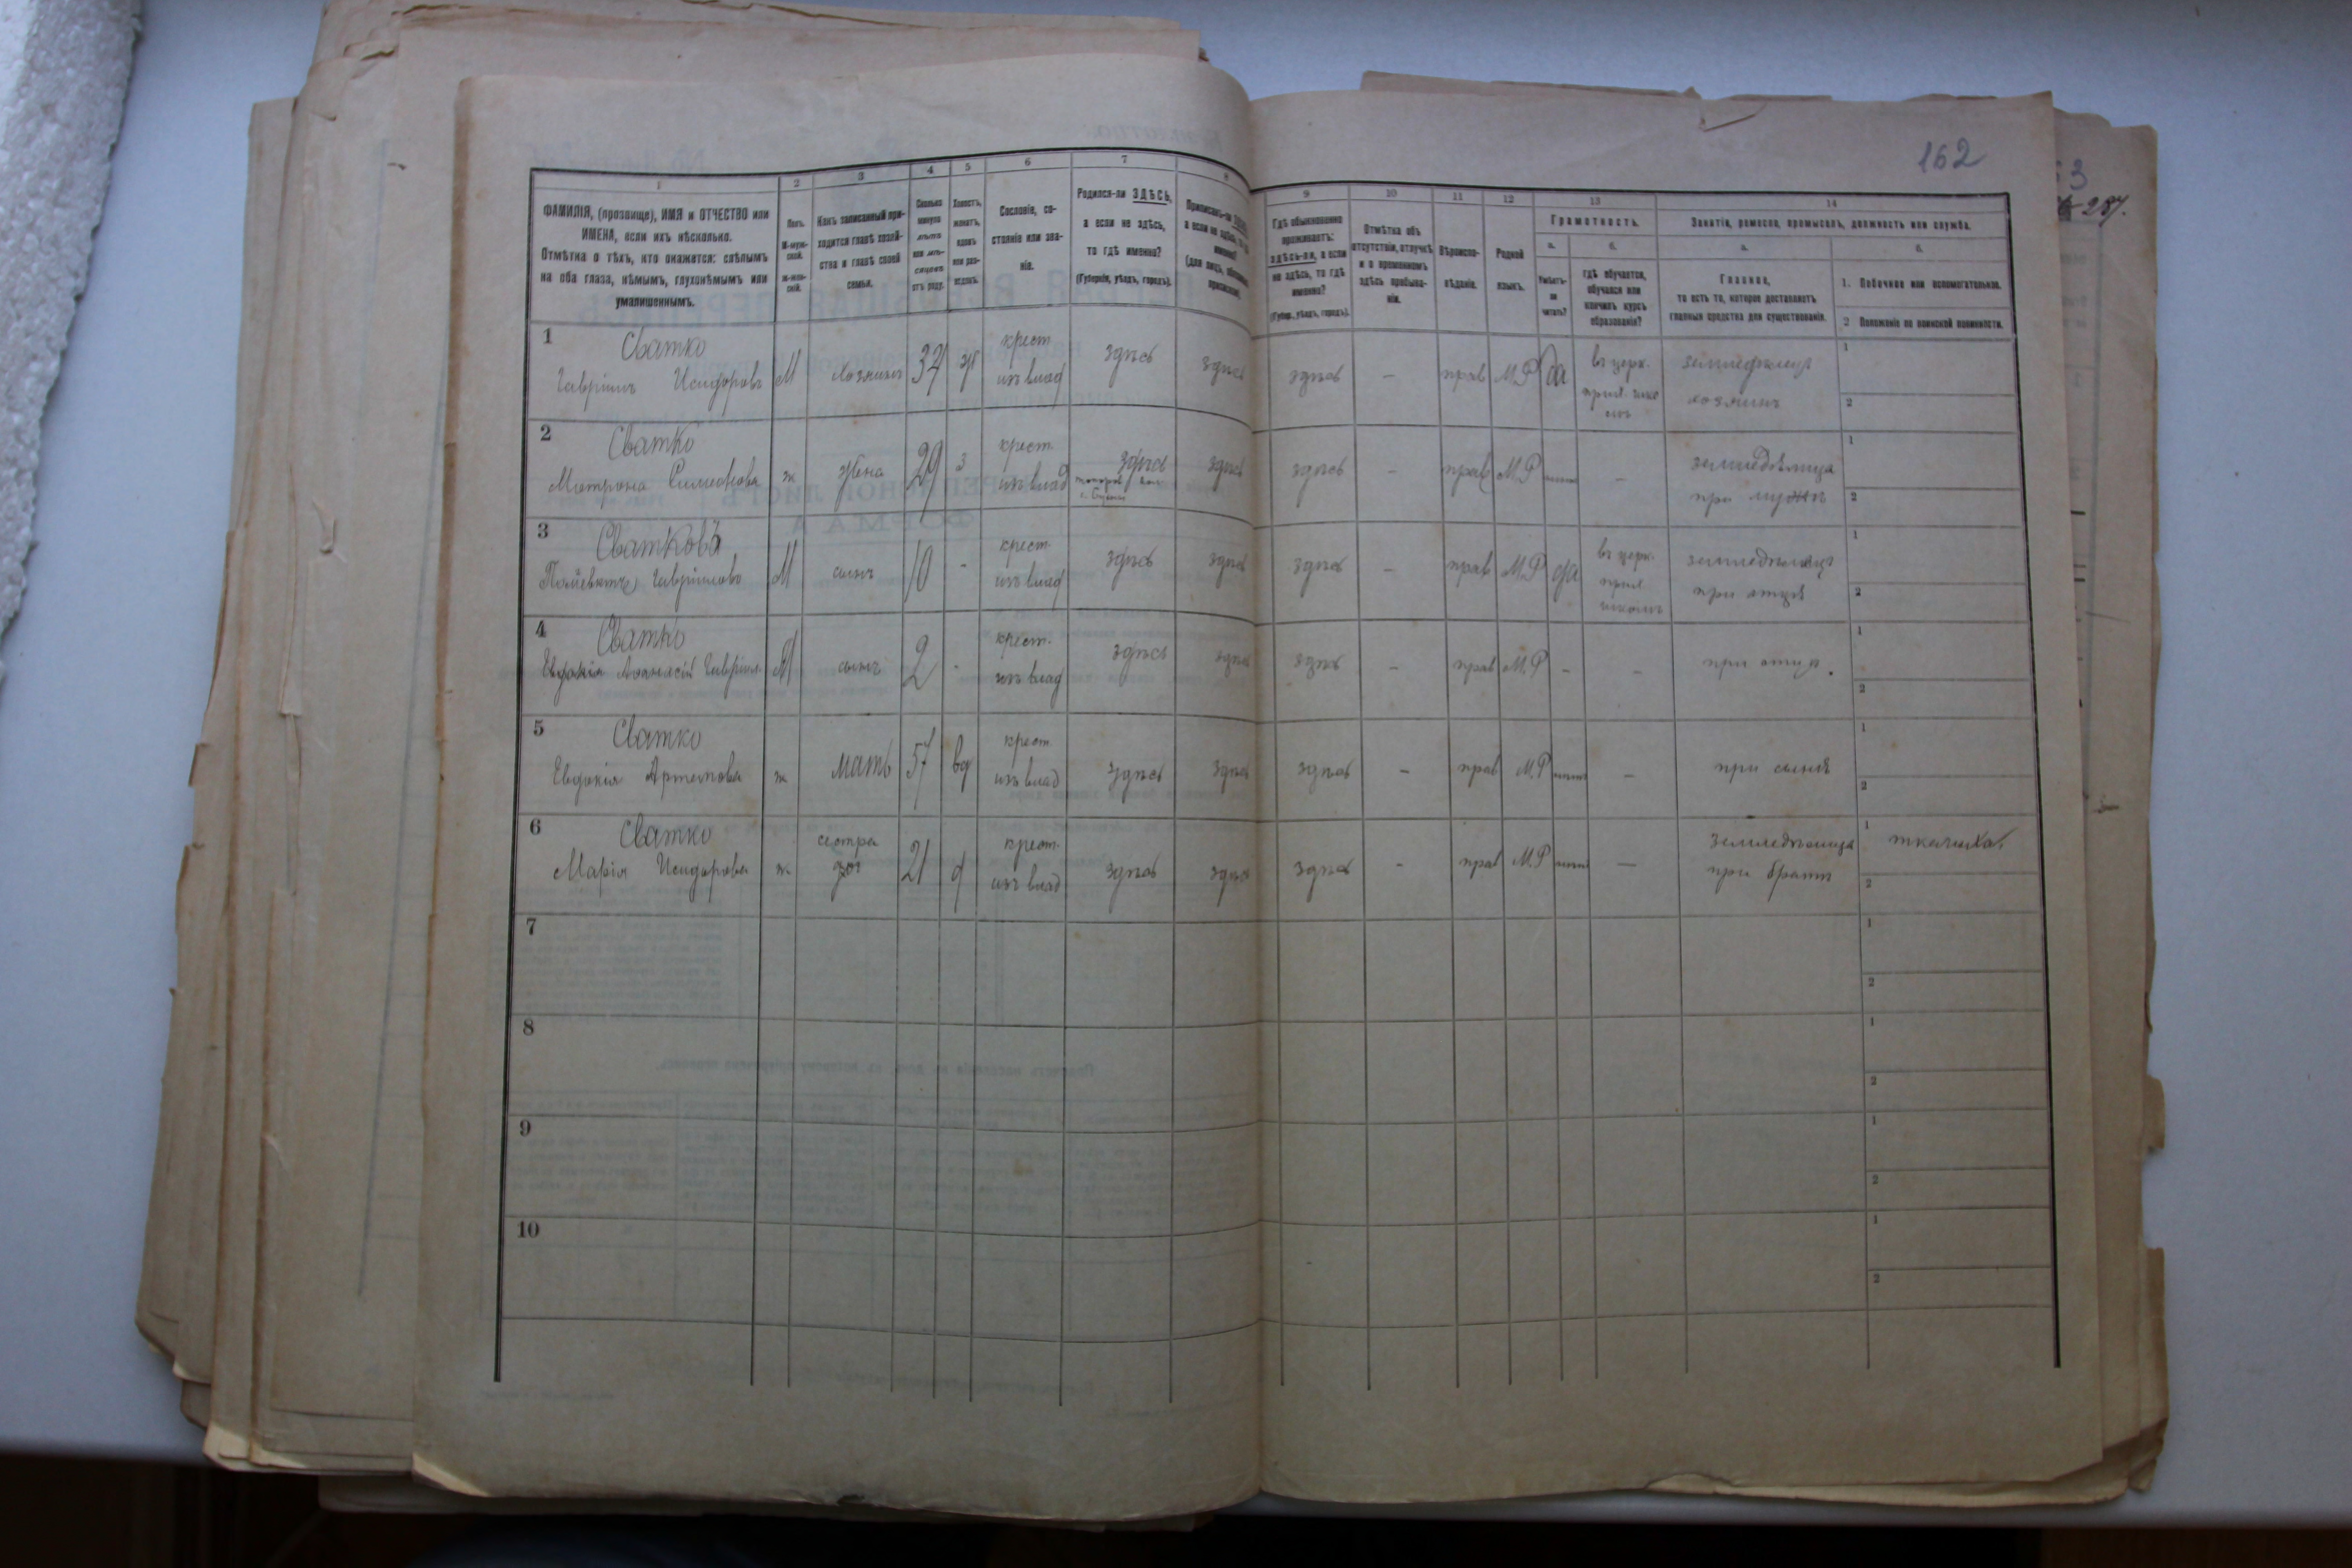 162
3
287.
1
2
3
4
5
6
7
8
9
10
11
12
13
14
ФАМИЛІЯ, (прозвище), ИМЯ и ОТЧЕСТВО или
ИМЕНА, если ихъ нѣсколько.
Отмѣтка о тѣхъ, кто окажется: слѣпымъ
на оба глаза, нѣмымъ, глухонѣмымъ или
умалишеннымъ.
Полъ.
М-муж-
ской.
ж-жен-
скій.
Какъ записанный при-
ходится главѣ хозяй-
ства и главѣ своей
семьи.
Сколько
минуло
лѣтъ
или мѣ-
сяцевъ
отъ роду.
Холостъ,
женатъ,
вдовъ
или раз-
веденъ.
Сословіе, со-
стояніе или зва-
ніе.
Родился-ли ЗДѢСЬ,
а если не здѣсь,
то гдѣ именно?
(Губернія, уѣздъ, городъ).
Гдѣ обыкновенно
проживаетъ:
здѣсь-ли, а если
не здѣсь, то гдѣ
именно?
(Губер., уѣздъ, городъ).
Отмѣтка объ
отсутствіи, отлучкѣ
и о временномъ
здѣсь пребыва-
ніи.
Вѣроиспо-
вѣданіе.
Родной
языкъ.
Грамотность.
а.
б.
Умѣетъ-
ли
читать?
гдѣ обучается,
обучался или
кончилъ курсъ
образованія?
Занятіе, ремесло, промыселъ, должность или служба.
а.
б.
Главное,
то есть то, которое доставляетъ
главныя средства для существованія.
1. Побочное или вспомогательное.
2 Положеніе по воинской повинности.
1
Сватко
Гавріилъ Исидоровъ
М
хозяинъ
37
ж
крест
изъ влад
здѣсь
здѣсь
здѣсь
-
прав
М.Р
да
въ церк.
земледѣлецъ
хозяинъ
1
2
2
Сватко
Матрона
ж
жена
29
з
крест.
изъ влад
здѣсь
здѣсь
здѣсь
-
прав
М.Р
-
земледѣлица
при мужѣ
1
2
3
Сватковъ
Гавріиловъ
М
сынъ
10
-
крест.
изъ влад
здѣсь
здѣсь
здѣсь
-
прав
М.Р
да
въ церк.
прих
школѣ
земледѣлецъ
при отцѣ
1
2
4
Сватко
Афанасій Гавріил
М
сынъ
2
-
крест.
изъ влад
здѣсь
здѣсь
здѣсь
-
прав
М.Р
-
-
при отцѣ.
1
2
5
Сватко
Евдокія Артемова
ж
мать
57
вд
крест
изъ влад
здѣсь
здѣсь
здѣсь
-
прав
М.Р
-
при сынѣ
1
2
6
Сватко
Марія Исидорова
ж
сестра
21
д
крест.
изъ влад
здѣсь
здѣсь
здѣсь
-
прав
М.Р
-
земледѣлица
при братѣ
1
ткачиха.
2
7
1
2
8
1
2
9
1
2
10
1
2